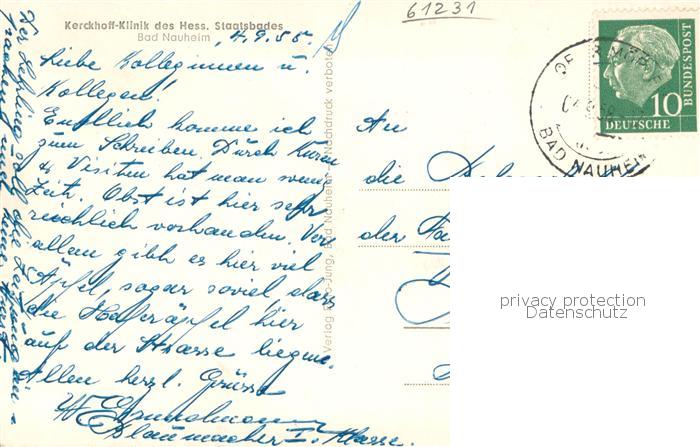 Kerckhoff-Klinik des Hess. Staatsbades
Bad Nauheim
4.9.55
61231
Liebe Kolleginnen u.
Kollegen!
Endlich komme ich
zum Schreiben. Durch Kuren
& Visiten hat man wenig
Zeit. Obst ist hier sehr
reichlich vorhanden. Vor
allen gibt es hier viel
Äpfel, sogar soviel dass
die Haferäpfel hier
auf der Strasse liegen.
Allen herzl. Grüsse
Blaumacher I. Klasse.
Der Lehrling soll die
Verlag Jung, Bad Nauheim Nachdruck verboten
An
die
der
DEUTSCHE
BUNDESPOST
10
BAD NAUHEIM
privacy protection
Datenschutz